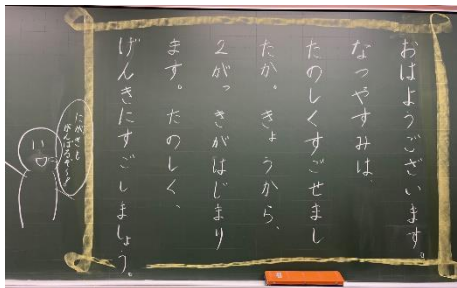 おはようございます。
なつやすみは、
たのしくすごせまし
たか。きょうから、
2がっきがはじまり
ます。たのしく、
げんきにすごしましょう。
にがっきも
がんばるぞ〜!